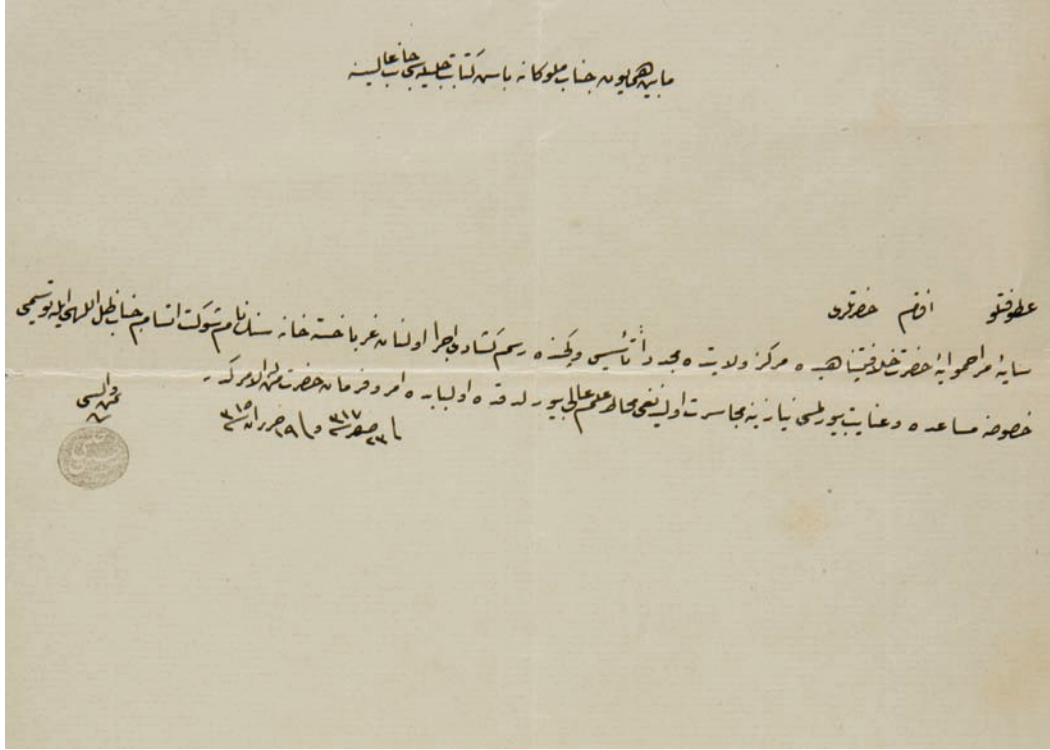 مابين همايون جناب ملوكانه باش كتابت جليله سى جانب عاليسنه
عطوفتلو افندم حضرتلرى
سايهٔ مراحموايهٔ حضرت خلافتپناهيده مركز ولايتده مجدداً تأسيس وكچنده رسم كشادى اجرا اولنان غربا خسته خانه سنك نام شوكت اتسام جناب ظل اللهى ايله توسيمى
خصوصنه مساعده و عنايت بيورلمسى نيازينه مجاسرت اولنديغى محاط علم عالى بيورلدقده اولبابده امر و فرمان حضرت من له الامركدر
فى ٢٣ صفر سنه ٣١٧ و فى ١٩ حزيران سنه ٣١٥
واليسى